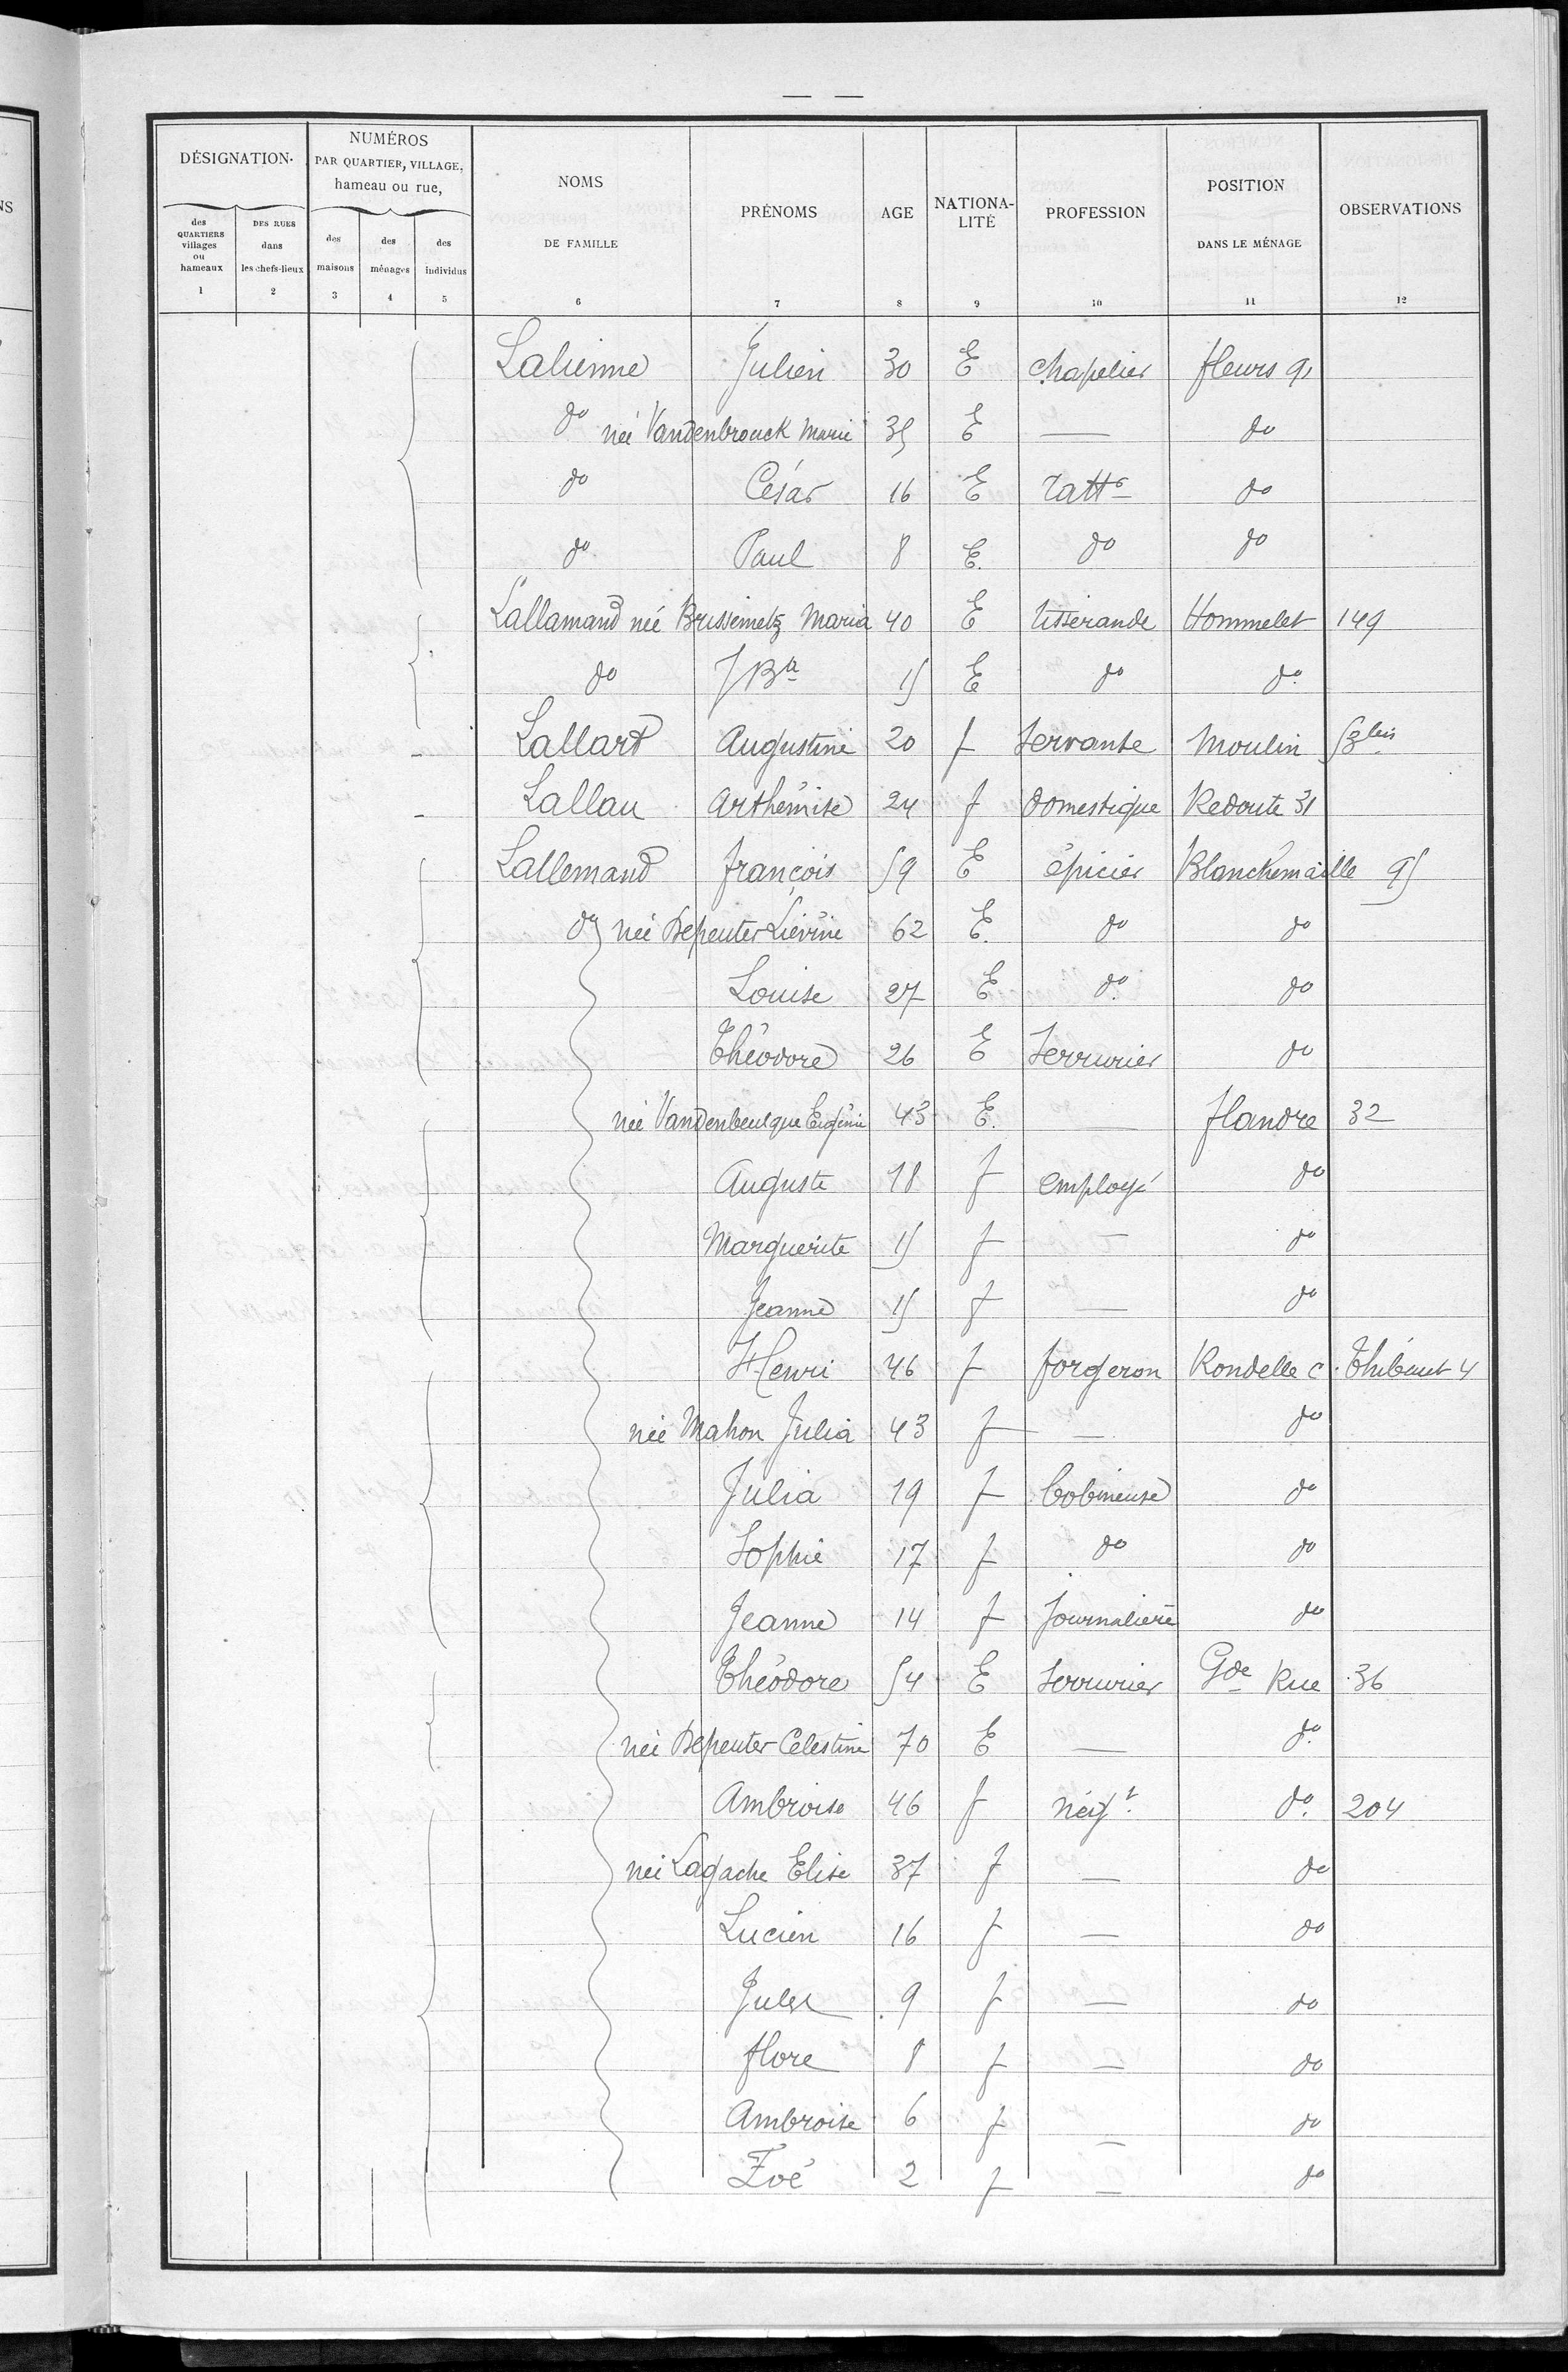 DÉSIGNATION.
NUMÉROS PAR QUARTIER, VILLAGE, hameau ou rue,
des QUARTIERS villages ou hameaux 1
DES RUES dans les chefs-lieux 2
des maisons 3
des ménages 4
des individus 5
NOMS DE FAMILLE 6
PRÉNOMS 7
AGE 8
NATIONALITÉ 9
PROFESSION 10
POSITION DANS LE MÉNAGE 11
OBSERVATIONS 12
Lalienne Julien 30 E chapelier fleurs 91
do née Vandenbrouck Marie 35 E — do
do César 16 E ratt do
do Paul 8 E. do do
Lallamand née Brissemetz Maria 40 E tisserande Hommelet 149
do J Bte 15 E do do
Lallard Augustine 20 f servante Moulin 53 bis
Lallau Arthémise 24 f domestique Redoute 31
Lallemand françois 59 E épicier Blanchemaille 95
do née Depeuter Liévine 62 E. do do
Louise 27 E do do
Théodore 26 E Serrurier do
née Vandenbeulque Eugénie 43 E. — flandre 32
Auguste 18 f employé do
Marguerite 15 f — do
Jeanne 15 f — do
Henri 46 f forgeron Rondelle c. Thibaut 4
née Mahon Julia 43 f — do
Julia 19 f bobineuse do
Sophie 17 f do do
Jeanne 14 f Journalière do
Théodore 54 E Serrurier Gde Rue 36
née Depeuter Célestine 70 E — do
Ambroise 46 f négt. do. 204
née Lagache Elise 37 f — do
Lucien 16 f — do
Jules 9 f — do
flore 8 f — do
Ambroise 6 f — do
Zoé 2 f — do